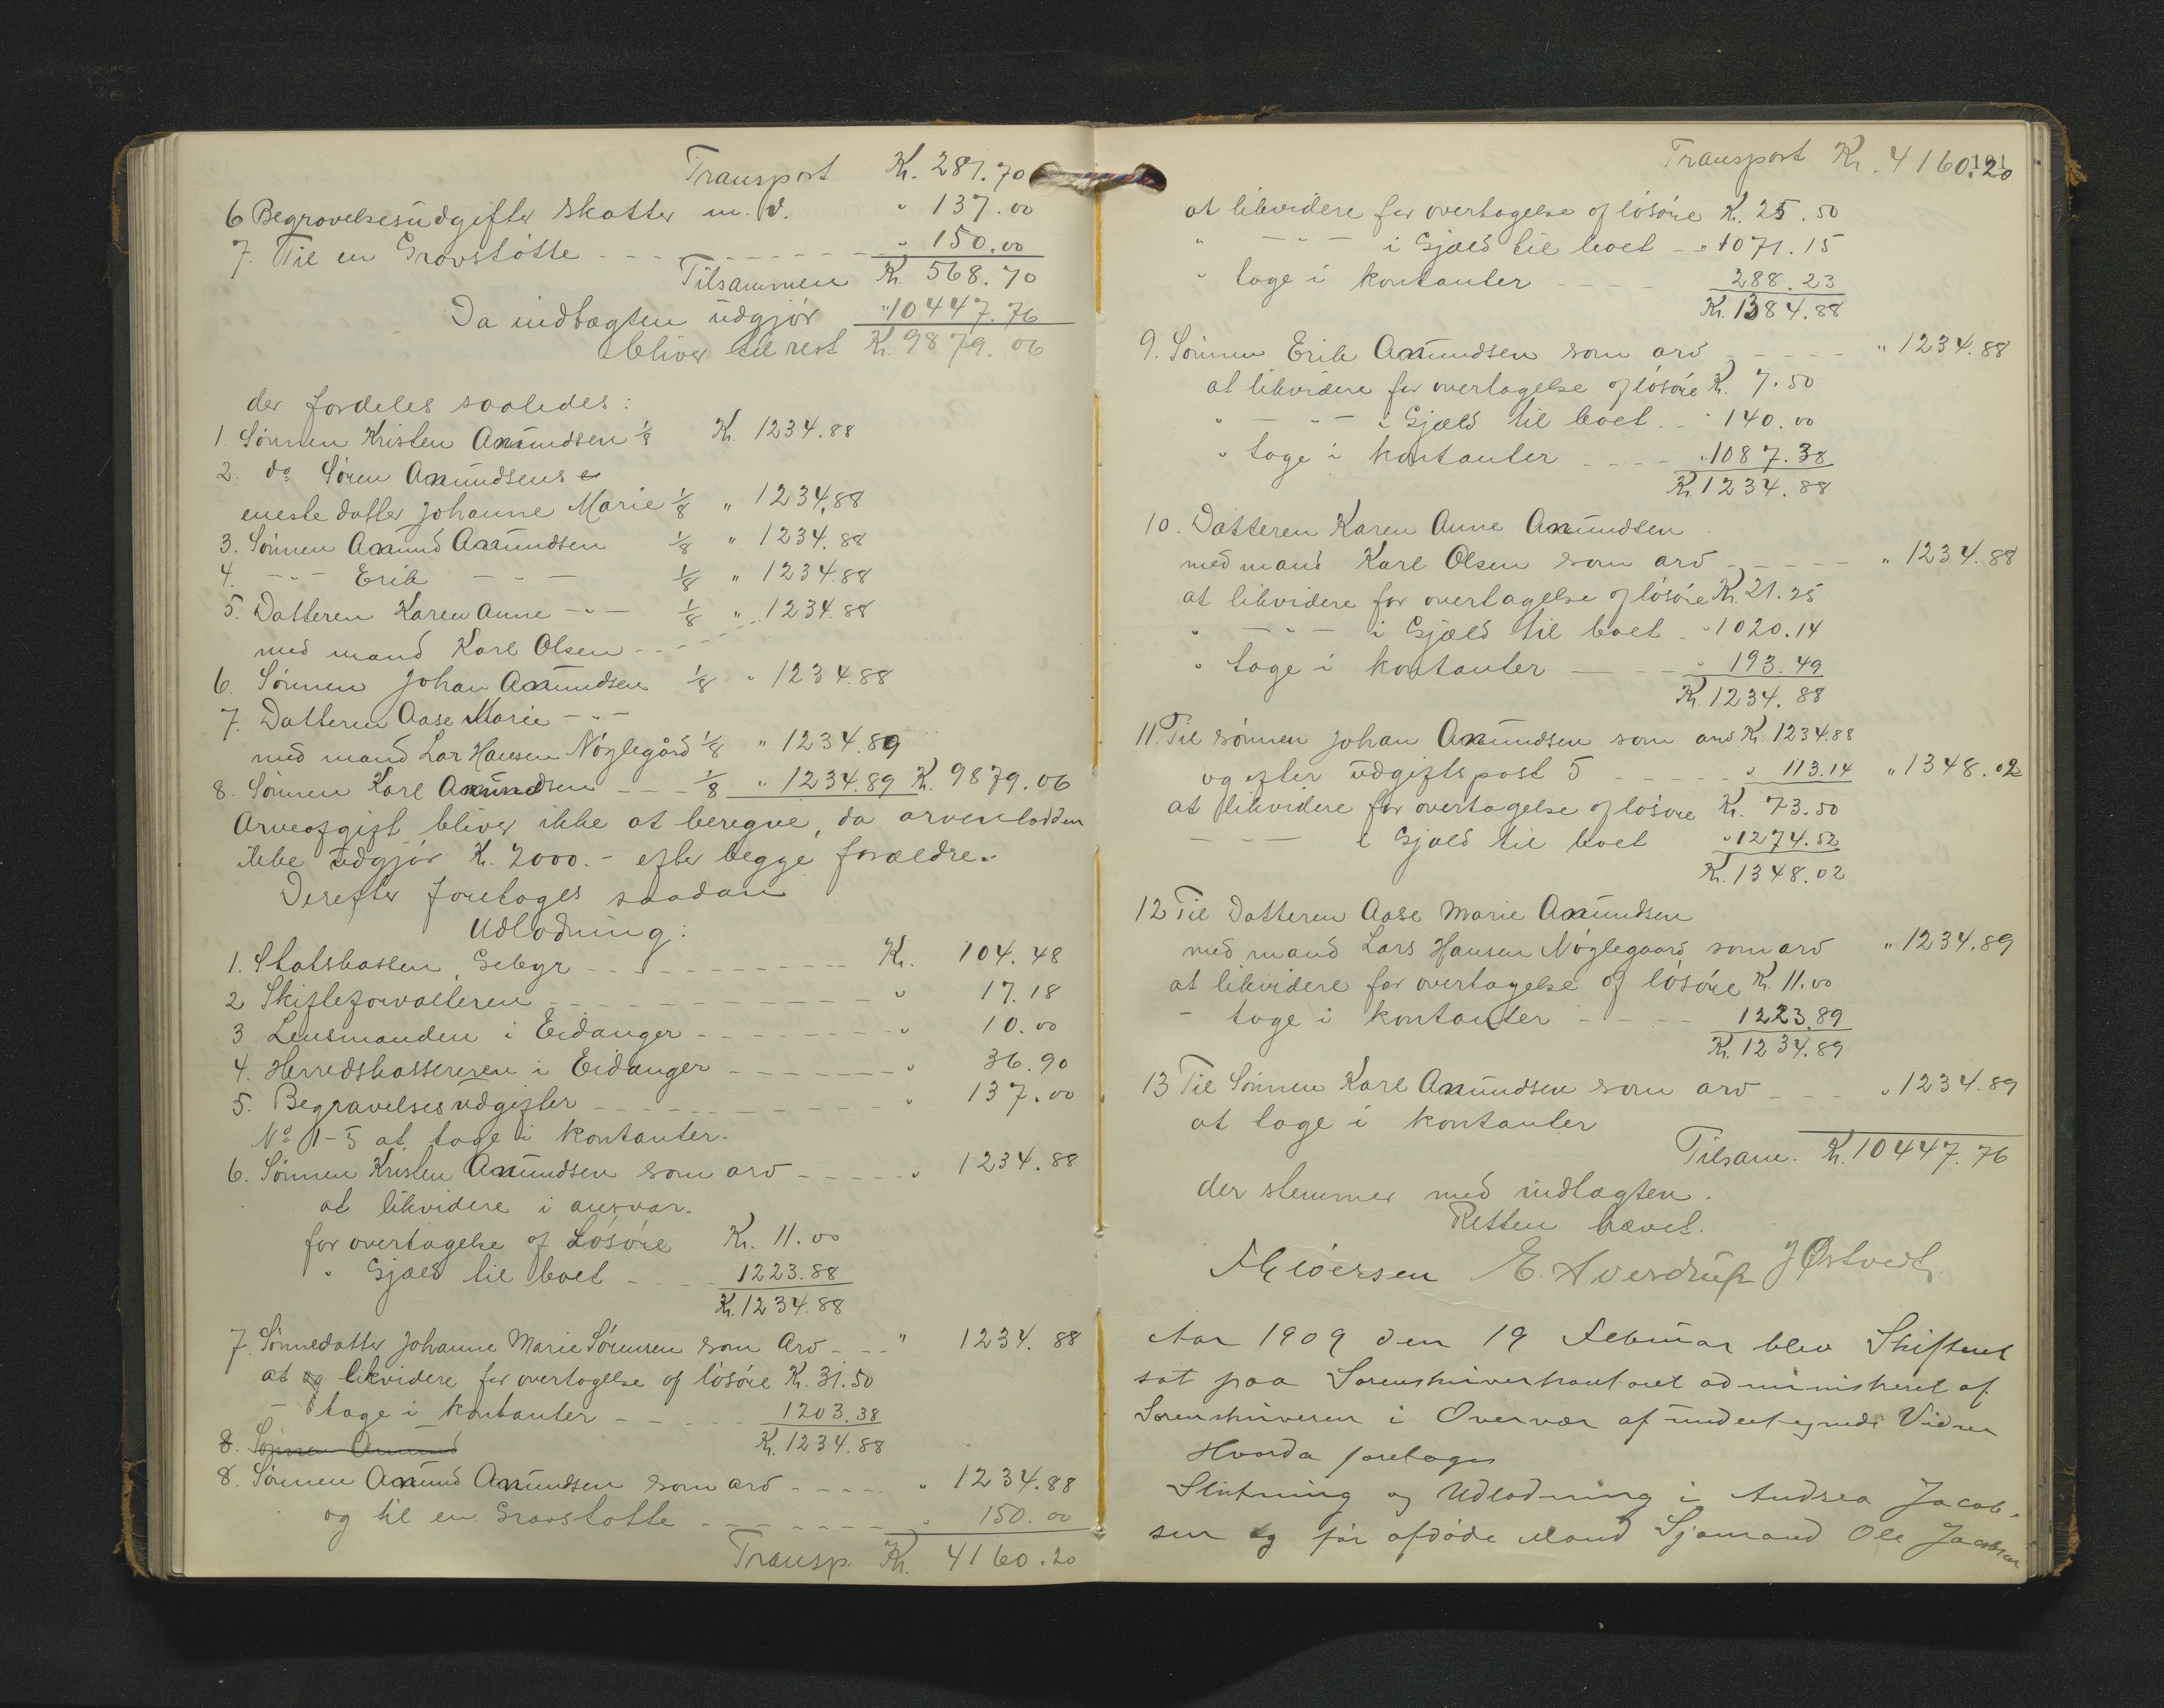 Transport Kr. 281.70
6 Begravelsesudgifter skatter m. v. " 137.00
7. Til en Gravstøtte - - - " 150.00
Tilsammen Kr. 568.70
Da indtægten udgjør " 10447.76
bliver til rest Kr. 9879.06
der fordeles saaledes:
1. Sønnen Kristen Amundsen 1/8 Kr. 1234.88
2. do Søren Amundsens
eneste datter Johanne Marie 1/8 " 1234.88
3. Sønnen Amund Amundsen 1/8 " 1234.88
4. - " - Erik - " - 1/8 " 1234.88
5. Datteren Karen Anne - " - 1/8 " 1234.88
med mand Karl Olsen - - -
6. Sønnen Johan Amundsen 1/8 " 1234.88
7. Datteren Aase Marie - " -
med mand Lar Hansen Nøglegård 1/8 " 1234.89
8. Sønnen Karl Amundsen - - 1/8 " 1234.89 Kr. 9879.06
Arveafgift bliver ikke at beregne, da arvenlodden
ikke udgjør Kr. 2000.- efter begge forældre.
Derefter foretoges saadan
Udlodning:
1. Statskassen, Gebyr - - - Kr. 104.48
2 Skifteforvalteren - - - " 17.18
3. Lensmanden i Eidanger - - - " 10.00
4. Herredskassereren i Eidanger - - - " 36.90
5. Begravelsesudgifter - - - " 137.00
No 1-5 at tage i kontanter.
6. Sønnen Kristen Amundsen som arv - - - " 1234.88
at likvidere i ansvar
for overtagelse af Løsøre Kr. 11.00
" Gjæld til boet - - 1223.88
Kr. 1234.88
7. Sønnedatter Johanne Marie Sørensen som Arv - - " 1234.88
at og likvidere for overtagelse af løsøre Kr. 31.50
- tage i kontanter - - - 1203.38
8. Sønnen Amund Kr. 1234.88
8. Sønnen Amund Amundsen som arv - - - " 1234.88
og til en Gravstøtte - - - " 150.00
Transp. Kr. 4160.20
Transport Kr. 4160.20
191
at likvidere for overtagelse af løsøre Kr. 25.50
" - " - i Gjæld til boet - " 1071.15
" tage i kontanter - - - 288.23
Kr. 1384.88
9. Sønnen Erik Amundsen som arv - - - " 1234.88
at likvidere for overtagelse af løsøre Kr. 7.50
" - " - i Gjæld til boet - " 140.00
" tage i kontanter - - - " 1087.38
Kr. 1234.88
10. Datteren Karen Anne Amundsen
med mand Karl Olsen som arv - - - " 1234.88
at likvidere for overtagelse af løsøre Kr. 21.25
" - " - i Gjæld til boet - " 1020.14
" tage i kontanter - - " 193.49
Kr. 1234.88
11. Til sønnen Johan Amundsen som arv Kr. 1234.88
og efter udgiftspost 5 - - - " 113.14 " 1348.02
at likvidere for overtagelse af løsøre Kr. 73.50
- - i Gjæld til boet " 1274.52
Kr. 1348.02
12 Til Datteren Aase Marie Amundsen
med mand Lars Hansen Nøglegaard som arv " 1234.89
at likvidere for overtagelse af løsøre Kr. 11.00
- tage i kontanter - - - 1223.89
Kr. 1234.89
13 Til Sønnen Karl Amundsen som arv - - - " 1234.89
at tage i kontanter
Tilsam. Kr. 10447.76
der stemmer med indtægten.
Retten hævet.
E. Sverdrup J Østvedt
Aar 1909 den 19 Februar blev Skifteret
sat paa Sorenskriverkontoret administreret af
Sorenskriveren i Overvær af undertegnede Vidner
Hvorda foretoges
Slutning og Udlodning i Andrea Jacob-
sen og før afdøde Mand Sjømand Ole Jacobsen